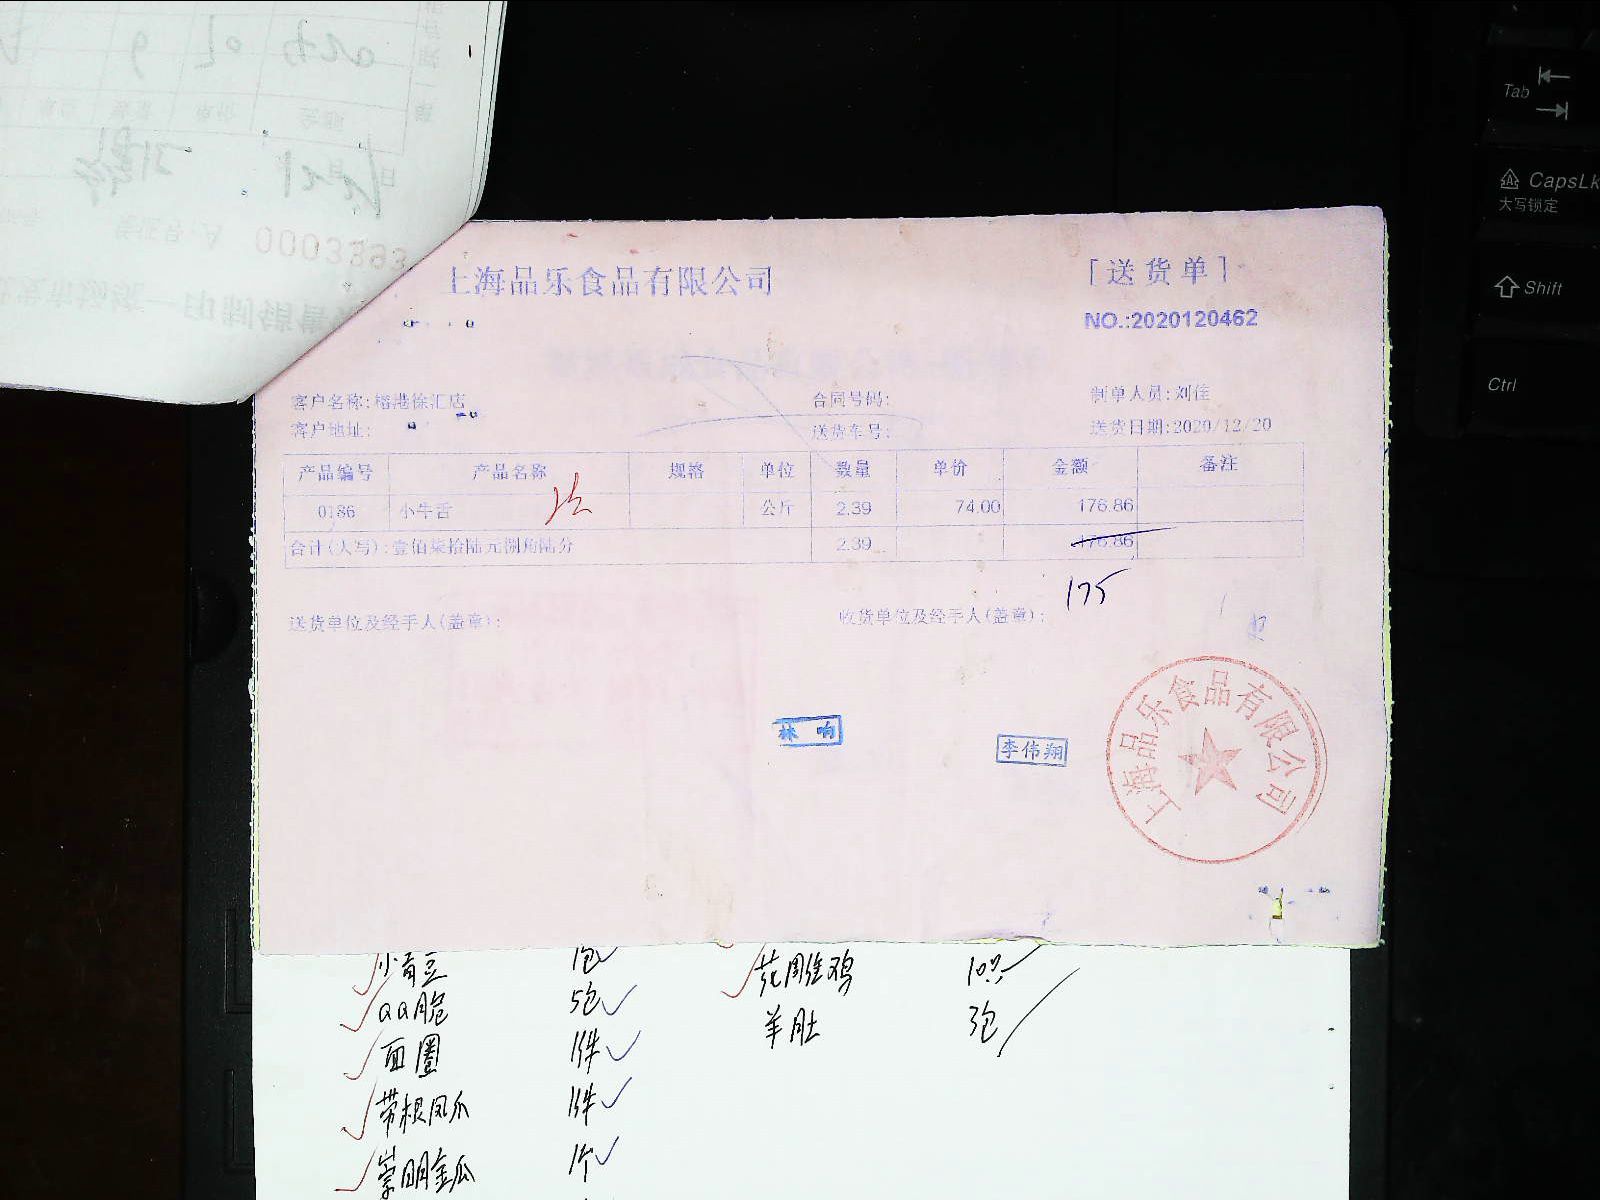 0003393
上海品乐食品有限公司
[送货单]
NO.:2020120462
客户名称:榕港徐汇店 合同号码: 制单人员:刘佳
客户地址: 送货车号: 送货日期:2020/12/20
产品编号 产品名称 规格 单位 数量 单价 金额 备注
0186 小牛舌 公斤 2.39 74.00 176.86
合计(大写):壹佰柒拾陆元捌角陆分 2.39 176.86
175
送货单位及经手人(盖章): 收货单位及经手人(盖章):
林响
李伟翔
上海品乐食品有限公司
小青豆 1包 花雕鸡 10只
QQ脆 5包 羊肚 3包
面圈 1件
带根凤爪 1件
崇明金瓜 1个
Tab
CapsLk
大写锁定
Shift
Ctrl